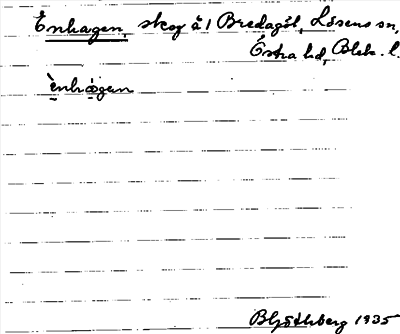 Enhagen, skog å 1 Bredagöl, Lösens sn,
Östra hd, Blek. l.
ènhagen
1935